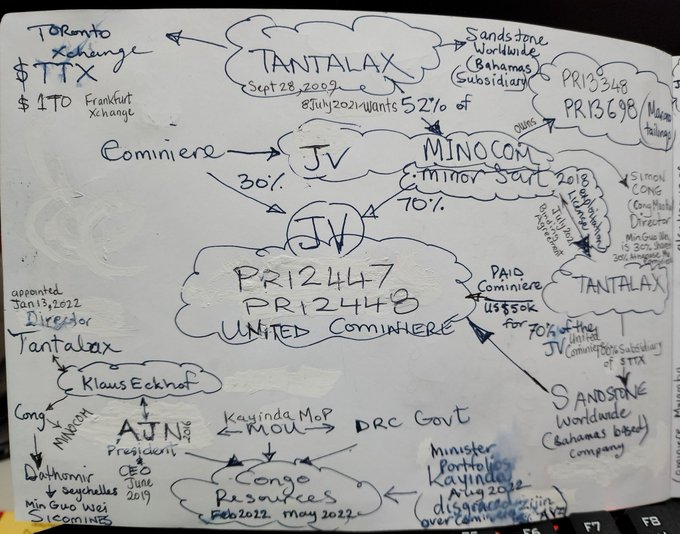 Toronto
Xchange
$ TTX
$ 1T0 Frankfurt
Xchange
TANTALAX
Sept 28, 2009
8 July 2021 - wants 52% of
Sandstone
Worldwide
(Bahamas
Subsidiary)
PR13348
PR13698
owns
Cominiere
JV
MINOCOM
minor Sarl
30%
70%
2018
exploitation
License
July 2021
Binding
Agreement
SIMON
CONG
(Cong Mao
Director
Min Guo Wei
is 30% share
30%
JV
PR12447
PR12448
UNITED COMINIERE
PAID
Cominiere
US$50k
for
70% of the
JV United
Cominiere
TANTALAX
100% Subsidiary
of $TTX
SANDSTONE
Worldwide
(Bahamas based)
company
appointed
Jan 13, 2022
Director
Tantalax
Klaus Eckhof
Cong
MINOCOM
AJN 2016
President
CEO
June
2019
Dathomir
Seychelles
Min Guo Wei
SICOMINES
Kayinda MoP
MOU
DRC Govt
Congo
Resources
Feb 2022 May 2022
Minister
Portfolios
Kayinda
Aug 2022
disgraced
over
Zijin
AVZ